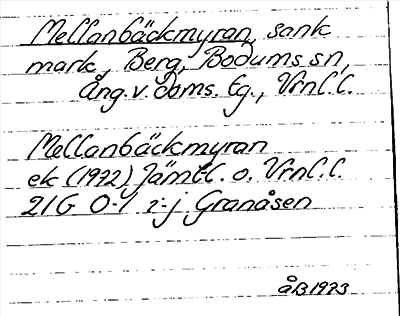 Mellanbäckmyran, sank
mark, Berg, Bodums sn,
Ång. v. doms. tg., Vrnl.l.
Mellanbäckmyran
ek (1972) Jämtl. o. Vrnl.l.
21G 0-1 i-j Granåsen
åB 1973